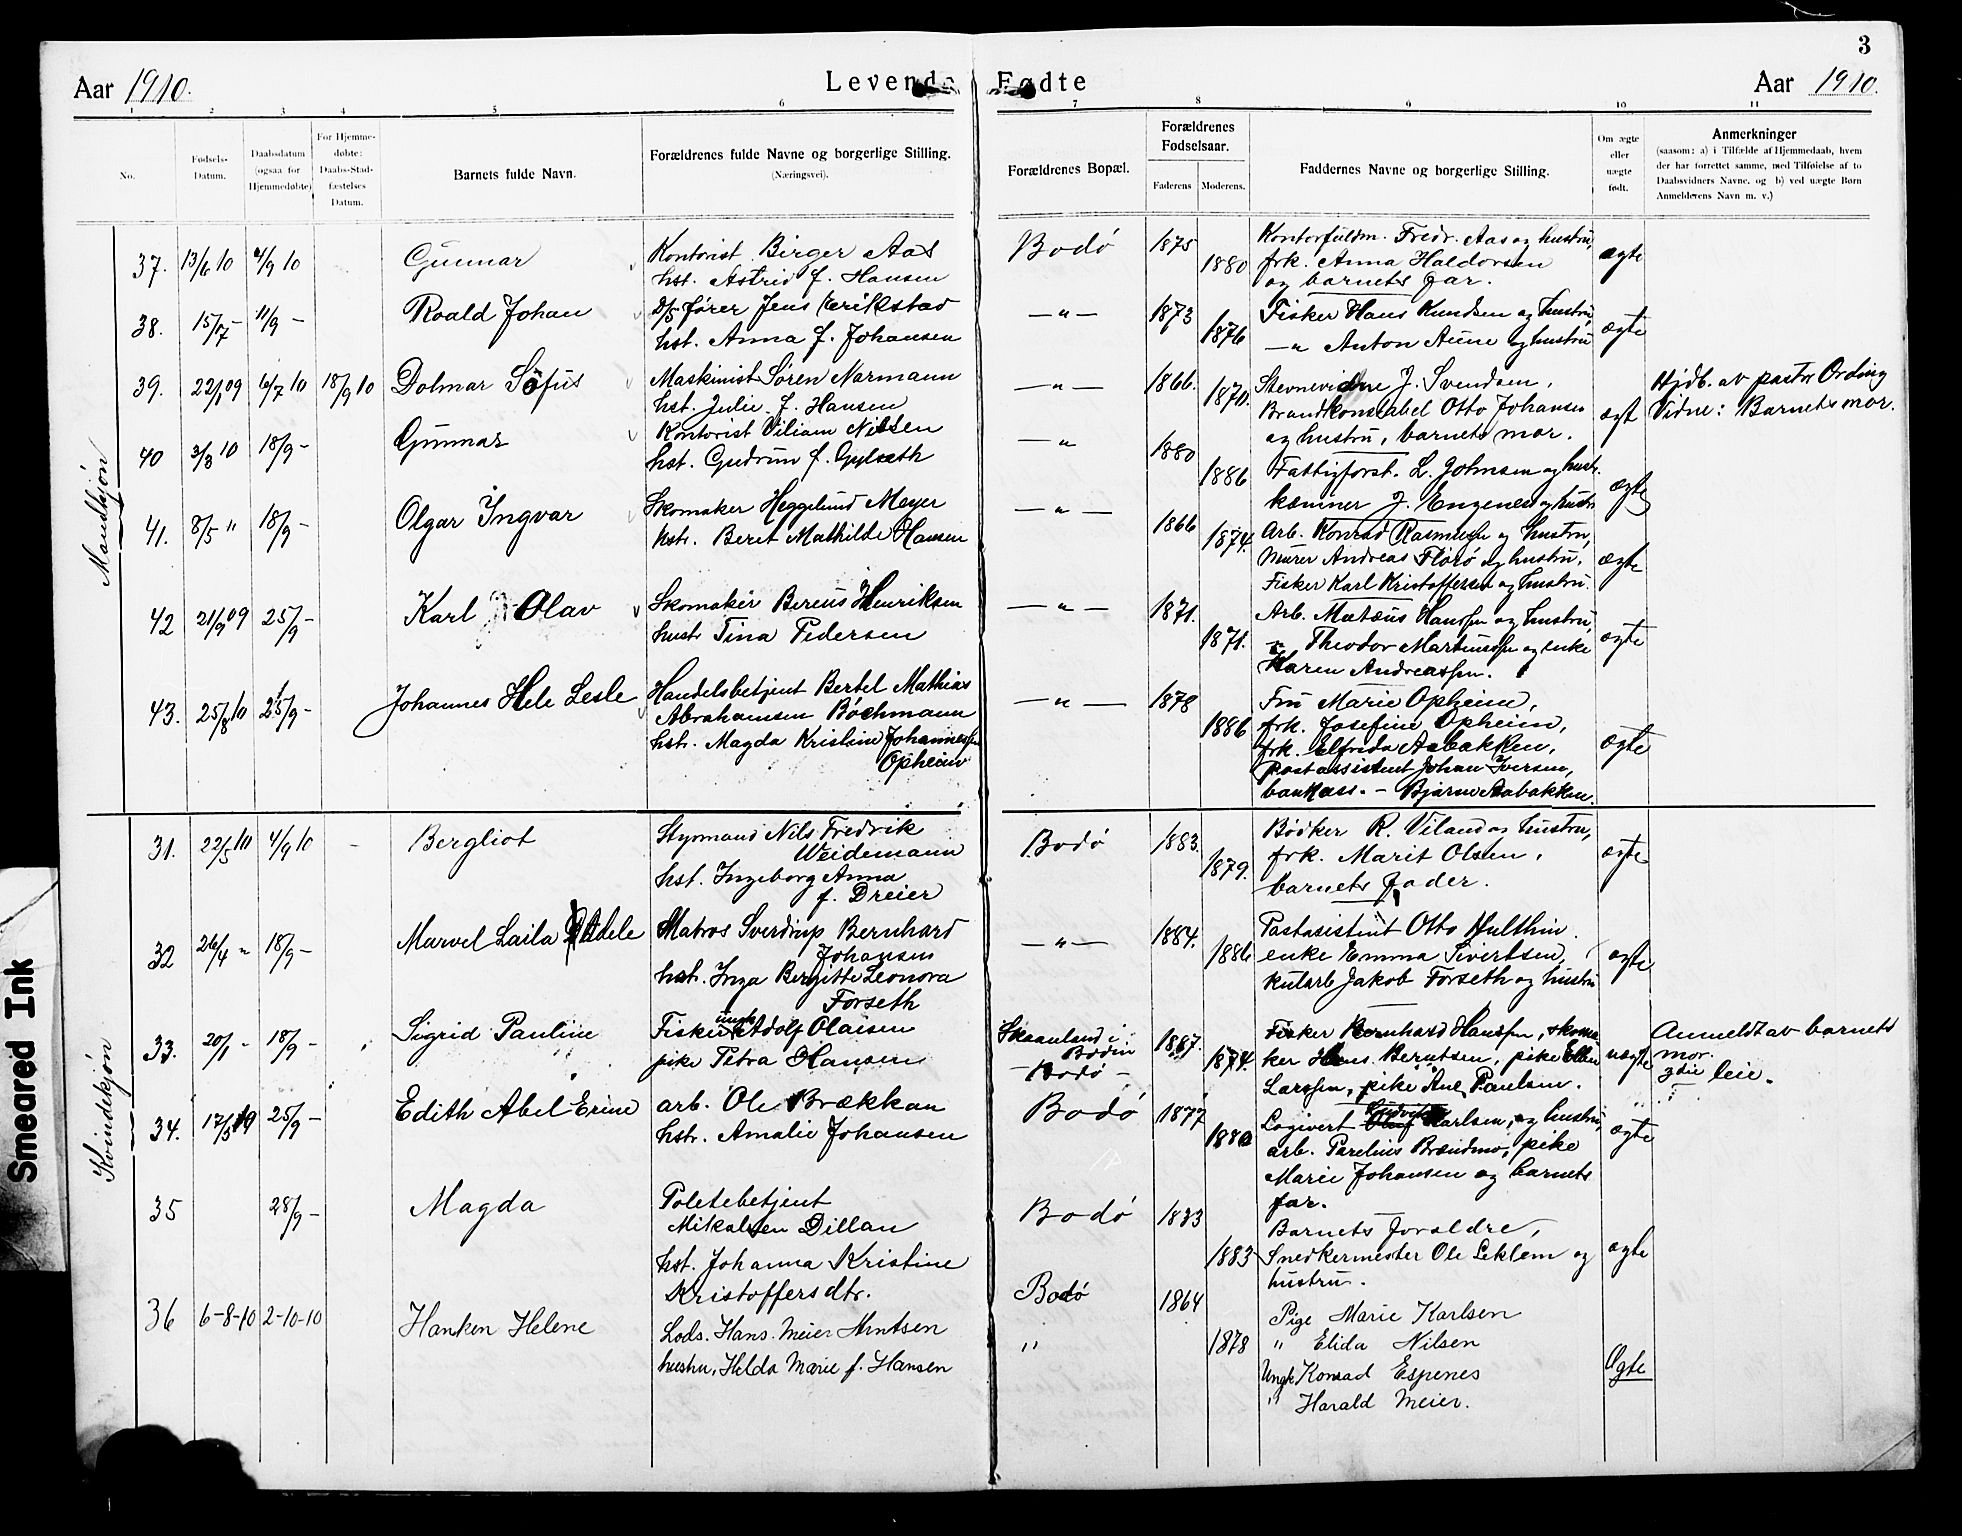 3
Aar 1910. Levende Fødte Aar 1910.
1 2 3 4 5 6 7 8 9 10 11
No.
Fødsels-
Datum.
Daabsdatum
(ogsaa for
Hjemmedøbte)
For Hjemme-
døbte:
Daabs-Stad-
fæstelses
Datum.
Barnets fulde Navn.
Forældrenes fulde Navne og borgerlige Stilling.
(Næringsvei).
Forældrenes Bopæl.
Forældrenes
Fødselsaar.
Faderens Moderens.
Faddernes Navne og borgerlige Stilling.
Om ægte
eller
uægte
født.
Anmerkninger
(saasom: a) i Tilfælde af Hjemmedaab, hvem
der har forrettet samme, med Tilføielse af to
Daabsvidners Navne, og b) ved uægte Børn
Anmelderens Navn m. v.)
Mandkjøn
37. 13/6 10 4/9 10 Gunnar
Kontorist Birger Aas
hst. Astrid f. Hansen
Bodø 1875 1880
Kontorfuldm. Fredr. Aas og hustru,
frk. Anna Haldorsen
og barnets far.
ægte
38. 15/7 - 11/9 - Roald Johan
D/S fører Jens Erikstad
hst. Anna f. Johansen
— " — 1873 1876
Fisker Hans Knudsen og hustru,
— " Anton Aune og hustru
ægte
39. 22/1 09 6/7 10 18/9 10 Dolmar Söfus
Maskinist Søren Normann
hst. Julie f. Hansen
— " — 1866. 1870.
Stevnevidne J. Svendsen,
Brandkonstabel Otto Johansen
og hustru, barnets mor.
ægt
Hjdb. av pastor Ording
Vidne: Barnets mor.
40 3/3 10 18/9 - Gunnar
Kontorist Viliam Nilsen
hst. Gudrun f.
— " 1880 1886
Fattigforst. L. Johnsen og hustr.
kæmner J. Engenes og hustru
ægte
41. 8/5 " 18/9 - Olgar Ingvar
Skomaker Heggelund Meyer
hstr. Beret Mathilde Hansen
— " — 1866 1874.
Arb. Konrad Rasmussen og hustru,
Murer Andreas Florø og hustru,
Fisker Karl Kristoffersen og hustru.
ægte
42 21/9 09 25/9 - Karl Olav
Skomaker Bereus Henriksen
hustr Tina Pedersen
— " — 1871. 1871.
Arb. Matæus Hanssen og hustru,
" Theodor Martinussen og enke
Karen Andreassen.
ægte
43. 25/8 10 25/9 - Johannes Hele Lesle
Handelsbetjent Bertel Mathias
Abrahamsen Bøchmann
hstr. Magda Kristine Johannessen
Opheim
— " — 1878 1886
Fru Marie Opheim,
frk. Josefine Opheim,
frk. Elfrida Aabakken,
Postassistent Johan Iversen,
bankass. - Bjarne Aabakken.
ægte
Kvindekjøn
31. 22/5 10 4/9 10 - Bergliot
Styrmand Nils Fredrik
Weidemann
hst. Ingeborg Anna
f. Dreier
Bodø 1883 1879.
Bødker R. Viland og hustru,
frk. Marit Olsen,
barnets fader.
ægte
32 26/4 " 18/9 - Marvel Laila Adele
Matros Sverdrup Bernhard
Johansen
hst. Inga Bergitte Leonora
Forseth
— " — 1884. 1886
Postasistent Otto Hulthin
enke Emma Sivertsen,
kularb Jakob Forseth og hustru
ægte
33. 20/1 - 18/9 - Sigrid Pauline
Fisker ungk Adolf Olaisen
pike Petra Hansen
Skaanland i
Bodin
- Bodø -
1887. 1874.
Fisker Bernhard Hanssen, skoma-
ker Hans Berntsen, pike Ellen
Larssen, pike Ane Paulsen.
uægte
Anmeldt av barnets
mor.
3die leie.
34. 17/5 09 25/9 - Edith Abel Erine
arb. Ole Brækkan
hstr. Amalie Johansen
Bodø 1877 1880
Logivert Ludvig Karlsen, og hustru,
arb. Parelius Brændmo, pike
Marie Johansen og barnets
far.
ægte
35 28/9 - Magda
Politebetjent
Mikalsen Dillan
hst. Johanna Kristine
Kristoffersdtr.
Bodø 1883 1883
Barnets foraldre,
Snedkermester Ole Leklem og
hustru.
ægte
36 6-8-10 2-10-10 Hanken Helene
Lods. Hans Meier Arntsen
hustru, Helda Marie f. Hansen
Bodø
"
1864 1878
Pige Marie Karlsen
" Elida Nilsen
Ungk Konrad Espenes
" Harald Meier.
Ægte
Smeared Ink